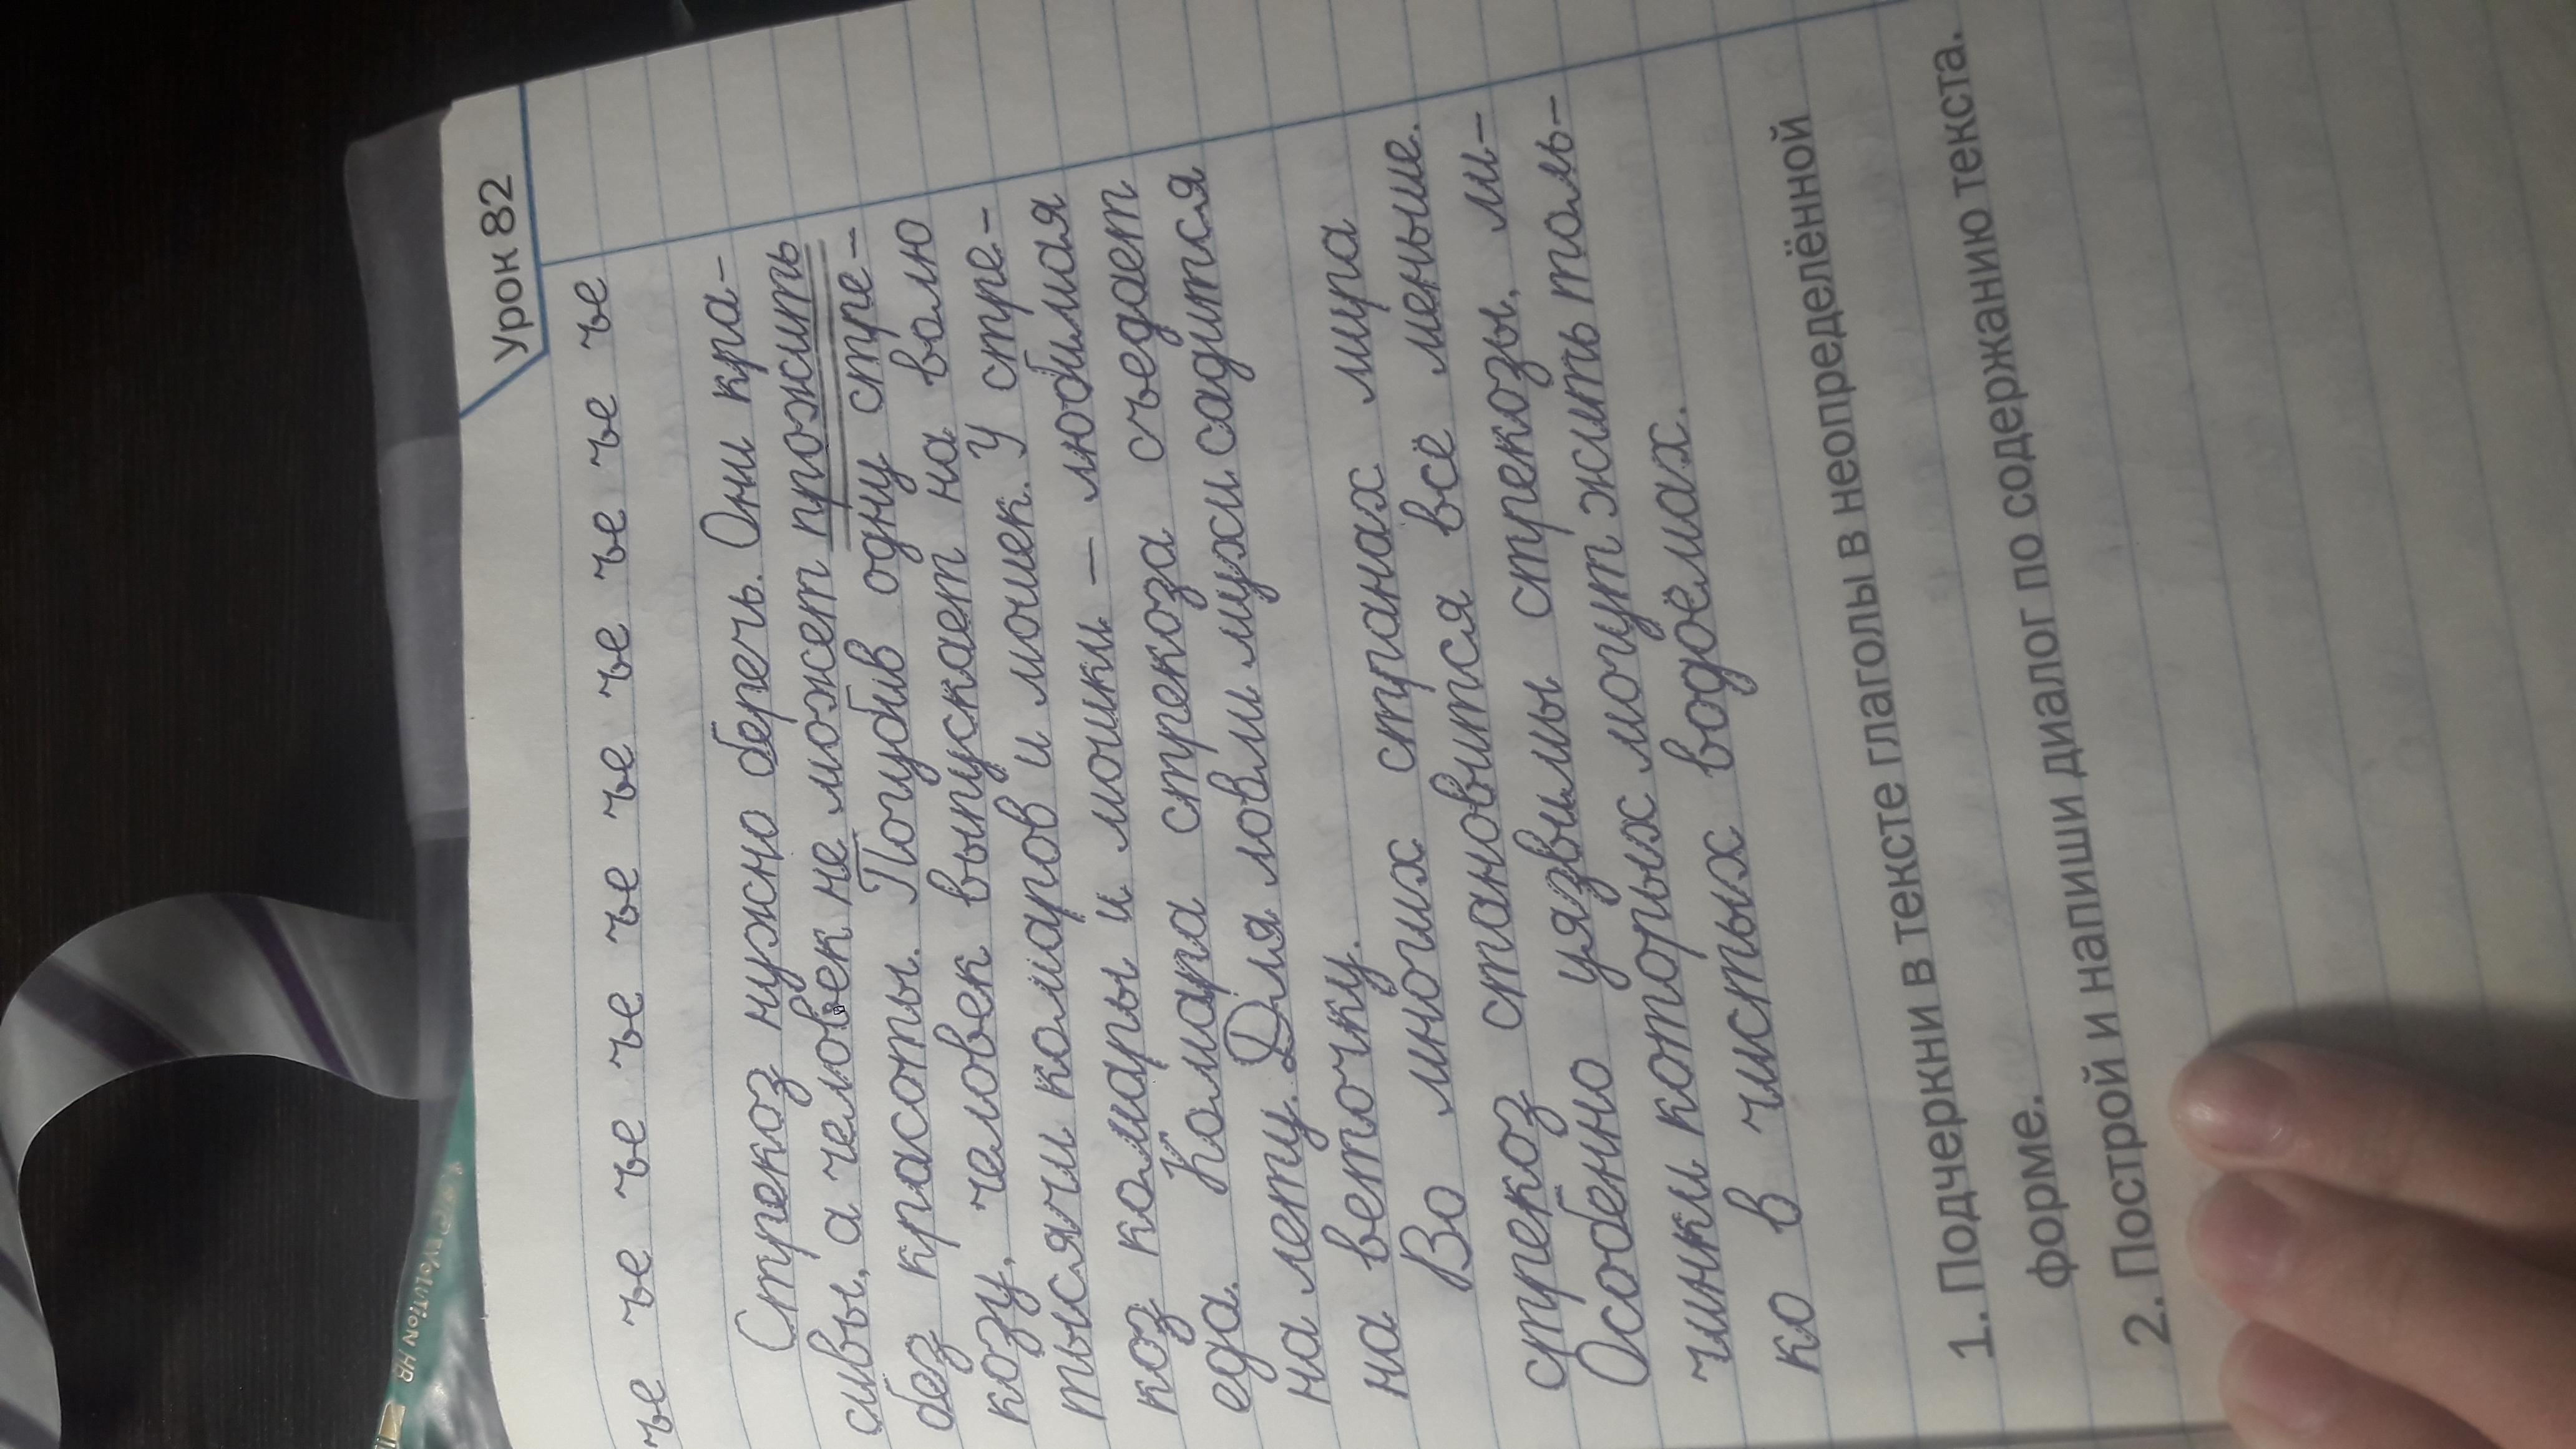 Урок 82
ъе ъе ъе ъе ъе ъе ъе ъе ъе ъе ъе
Стрекоз нужно беречь. Они кра-
сивы, а человек не может прожить
без красоты. Погубив одну стре-
козу, человек выпускает на волю
тысячи комаров и мошек. У стре-
коз комары и мошки – любимая
еда. Комара стрекоза съедает
на лету. Для ловли мухи садится
на веточку.
Во многих странах мира
стрекоз становится всё меньше.
Особенно уязвимы стрекозы, ли-
чинки которых могут жить толь-
ко в чистых водоёмах.
1. Подчеркни в тексте глаголы в неопределённой
форме.
2. Построй и напиши диалог по содержанию текста.
EVOLUTION HB